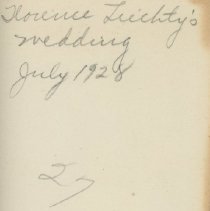 Florence Liechty's
wedding
July 1928